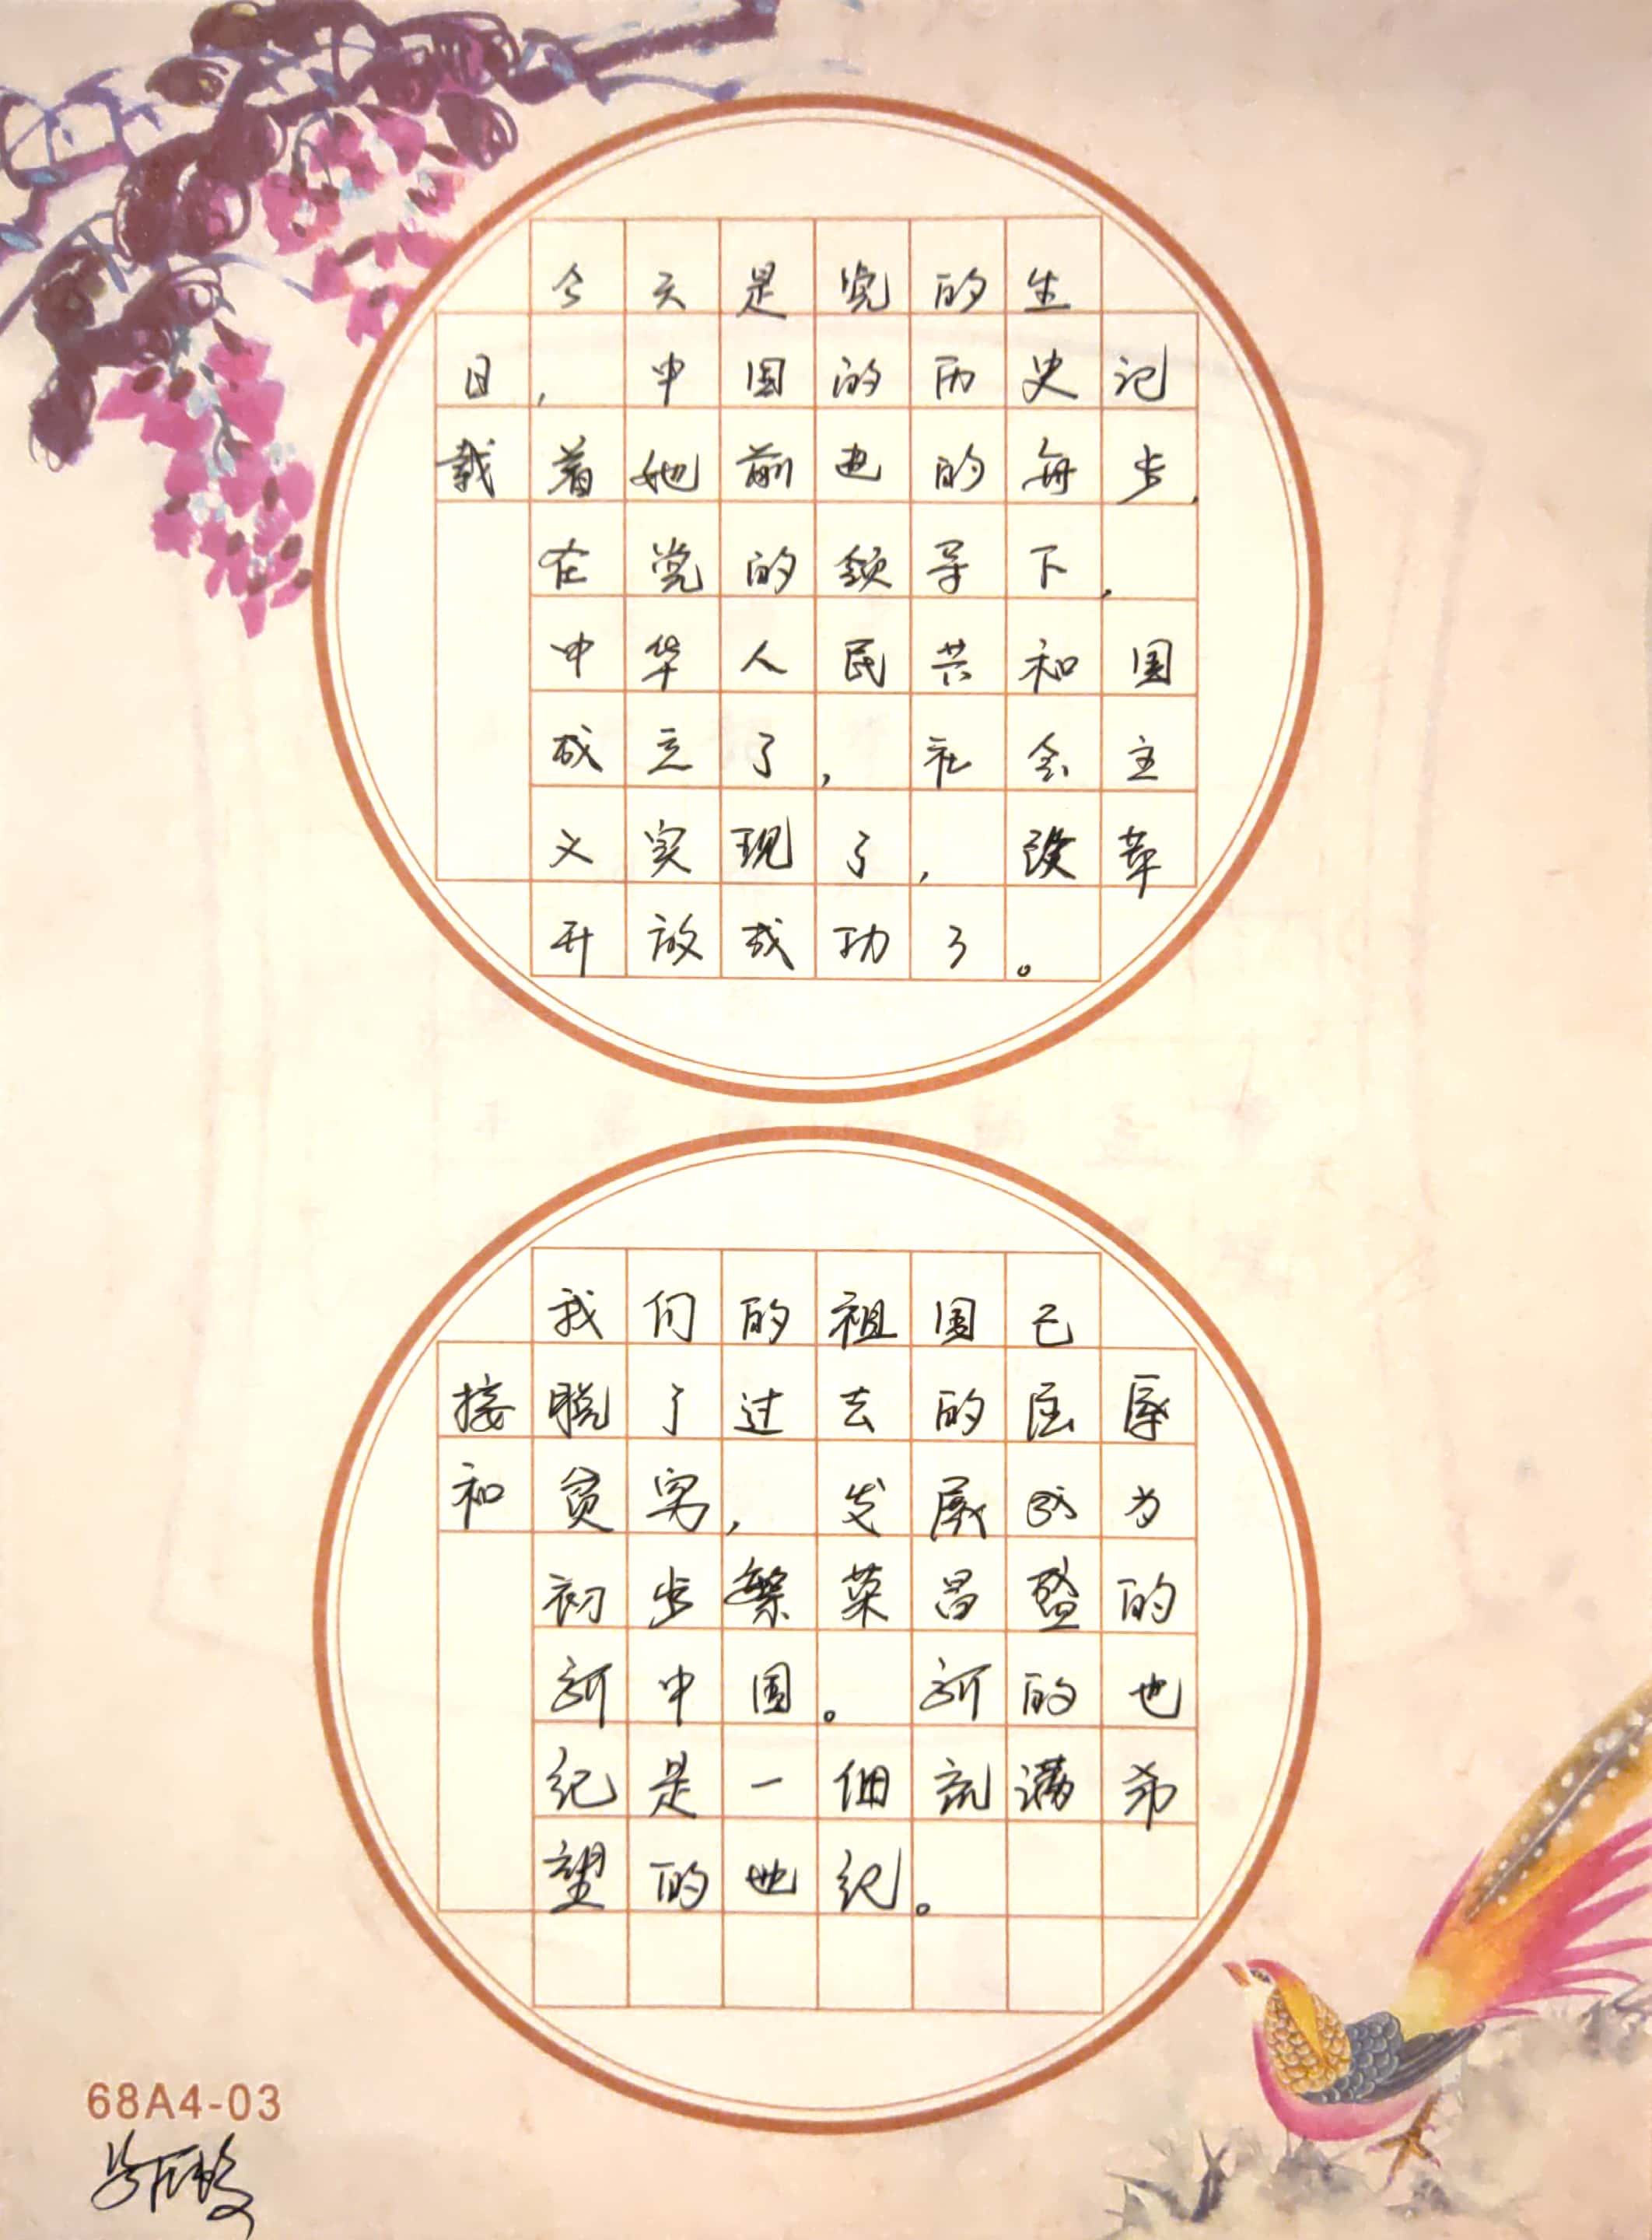 今天是党的生
日，中国的历史记
载着她前进的每步，
在党的领导下，
中华人民共和国
成立了，社会主
义实现了，改革
开放成功了。
我们的祖国已
摆脱了过去的屈辱
和贫穷，发展成为
初步繁荣昌盛的
新中国。新的世
纪是一个充满希
望的世纪。
68A4-03